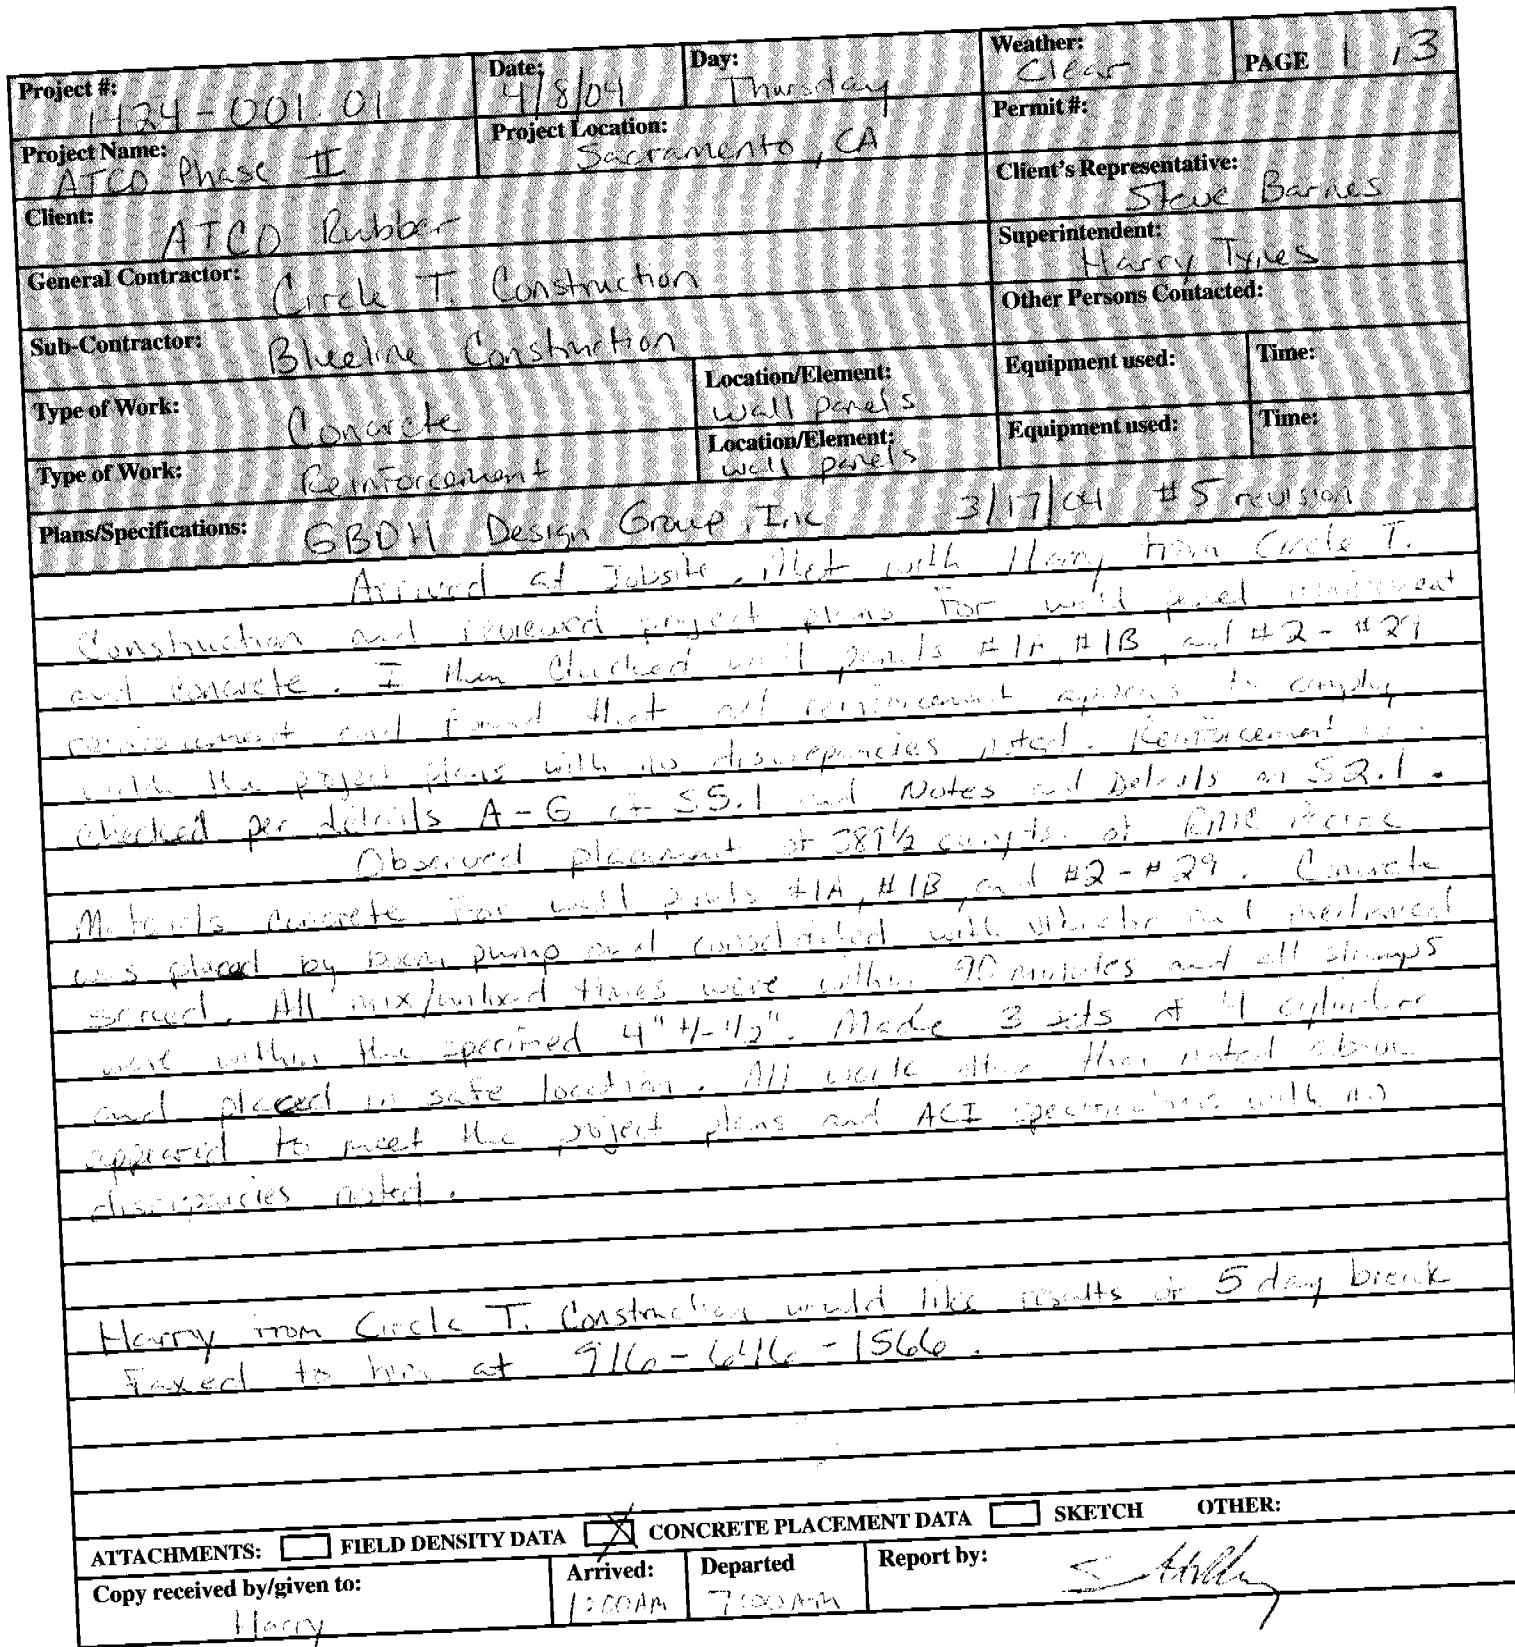 Project #: 1424-001.01
Date: 4/8/04
Day: Thursday
Weather: Clear
PAGE 1 / 3
Project Name: ATCO Phase II
Project Location: Sacramento, CA
Permit #:
Client: ATCO Rubber
Client's Representative: Steve Barnes
General Contractor: Circle T. Construction
Superintendent: Harry
Sub-Contractor: Blueline Construction
Other Persons Contacted:
Type of Work: Concrete
Location/Element: wall panels
Equipment used:
Time:
Type of Work: Reinforcement
Location/Element: wall panels
Equipment used:
Time:
Plans/Specifications: GBDH Design Group, Inc 3/17/04 #5 revision
Arrived at Jobsite, Met with Harry from Circle T.
Construction and reviewed project plans for wall panel reinforcement
and concrete. I then checked wall panels #1A, #1B, and #2 - #29
reinforcement and found that all reinforcement appears to comply
with the project plans with no discrepancies noted. Reinforcement
checked per details A-G of S5.1 and Notes and Details on S2.1.
Observed placement of 389 1/2 of RMC
Materials concrete for wall panels #1A, #1B, and #2 - #29. Concrete
was placed by boom pump and consolidated with vibrator and mechanical
screed. All mix/unmixed times were within 90 minutes and all slumps
were within the specified 4" +/- 1/2". Made 3 sets of 4 cylinders
and placed in safe location. All work other than noted above
appeared to meet the project plans and ACI specifications with no
discrepancies noted.
Harry from Circle T. Construction would like results of 5 day break
Faxed to him at 916-646-1566.
ATTACHMENTS: FIELD DENSITY DATA X CONCRETE PLACEMENT DATA SKETCH OTHER:
Copy received by/given to: Harry
Arrived: 1:00AM
Departed 7:00AM
Report by: